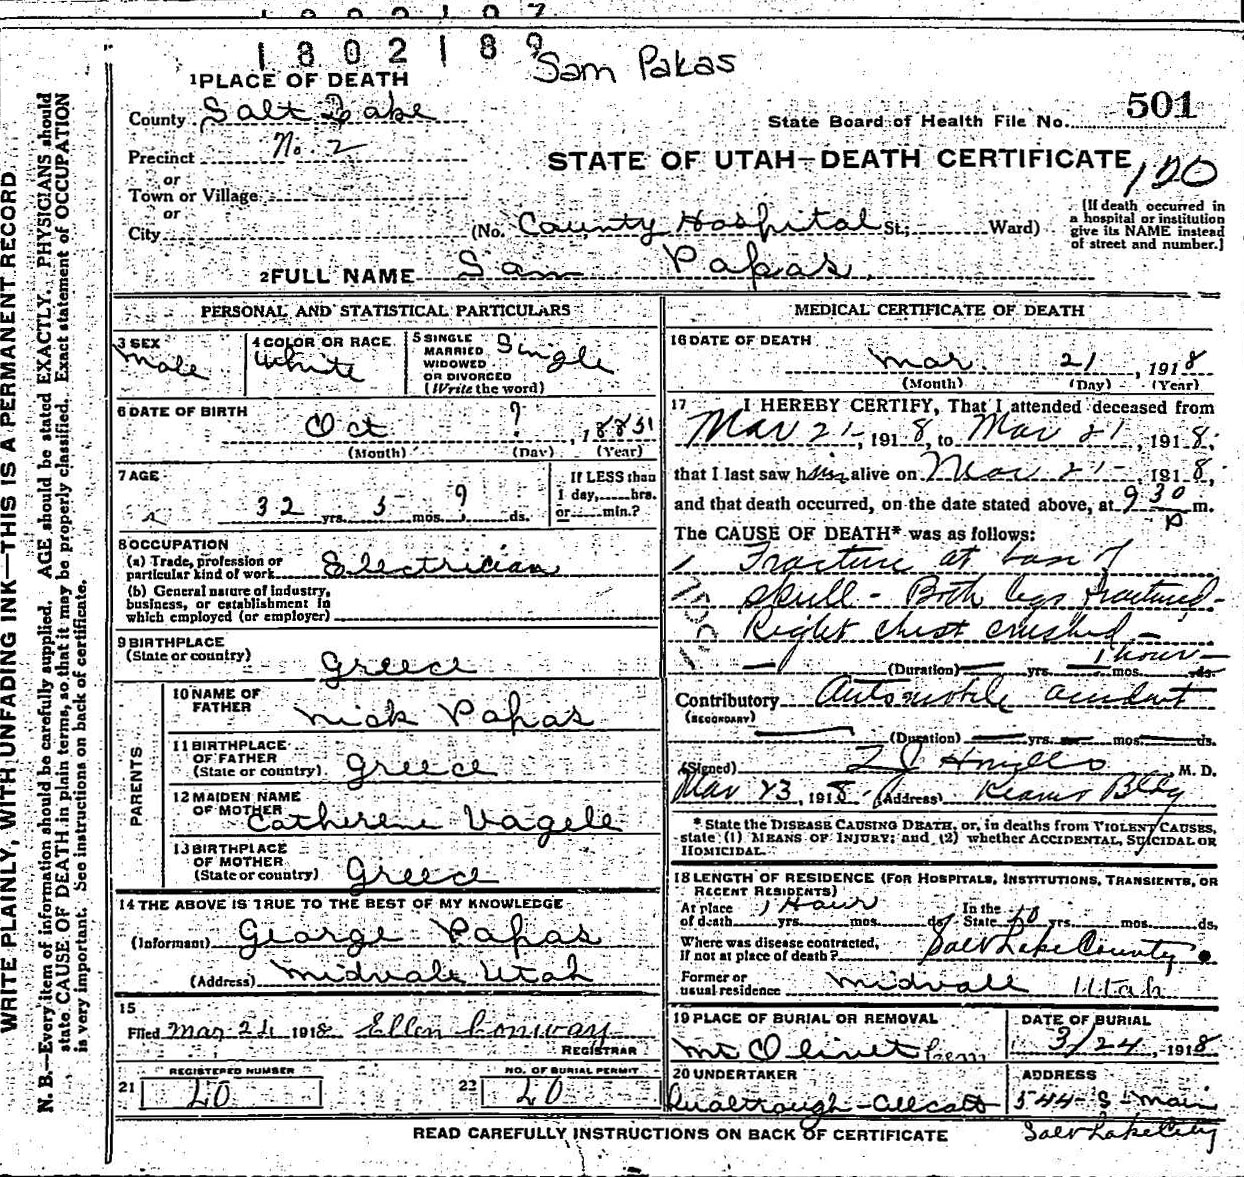 1802189
Sam Pakas
1 PLACE OF DEATH
County Salt Lake
State Board of Health File No. 501
Precinct No. 2
STATE OF UTAH—DEATH CERTIFICATE
120
or
Town or Village
or
City (No. County Hospital St; Ward)
[If death occurred in a hospital or institution give its NAME instead of street and number.]
2 FULL NAME Sam Papas.
PERSONAL AND STATISTICAL PARTICULARS
3 SEX Male
4 COLOR OR RACE White
5 SINGLE MARRIED WIDOWED OR DIVORCED (Write the word) Single
6 DATE OF BIRTH
Oct ?, 1
(Month) (Day) (Year)
7 AGE
32 yrs. 5 mos. ? ds.
If LESS than 1 day, hrs. or min.?
8 OCCUPATION
(a) Trade, profession or particular kind of work Electrician
(b) General nature of industry, business, or establishment in which employed (or employer)
9 BIRTHPLACE
(State or country) Greece
PARENTS
10 NAME OF FATHER Nick Papas
11 BIRTHPLACE OF FATHER (State or country) Greece
12 MAIDEN NAME OF MOTHER Catherene Vagele
13 BIRTHPLACE OF MOTHER (State or country) Greece
14 THE ABOVE IS TRUE TO THE BEST OF MY KNOWLEDGE
(Informant) George Papas
(Address) Midvale Utah
15
Filed Mar 24 1918 Ellen Conway
REGISTRAR
21 REGISTERED NUMBER 20
22 NO. OF BURIAL PERMIT 20
MEDICAL CERTIFICATE OF DEATH
16 DATE OF DEATH
Mar. 21, 1918
(Month) (Day) (Year)
17 I HEREBY CERTIFY, That I attended deceased from
Mar 21, 1918, to Mar 21, 1918,
that I last saw him alive on Mar 21, 1918,
and that death occurred, on the date stated above, at 930 P m.
The CAUSE OF DEATH* was as follows:
Fracture at base of
skull - Both legs fractured -
Right chest crushed -
1 hour
(Duration) yrs. mos. ds.
Contributory Automobile accident
(SECONDARY)
(Duration) yrs. mos. ds.
(Signed) M. D.
Mar 23, 1918 (Address) Kearns Bldg
* State the DISEASE CAUSING DEATH, or, in deaths from VIOLENT CAUSES, state (1) MEANS OF INJURY; and (2) whether ACCIDENTAL, SUICIDAL OR HOMICIDAL.
18 LENGTH OF RESIDENCE (FOR HOSPITALS, INSTITUTIONS, TRANSIENTS, OR RECENT RESIDENTS)
At place of death 1 Hour yrs. mos. ds. In the State 10 yrs. mos. ds.
Where was disease contracted, if not at place of death? Salt Lake County
Former or usual residence Midvale Utah
19 PLACE OF BURIAL OR REMOVAL
Mt Olivet Cem
DATE OF BURIAL
3/24, 1918
20 UNDERTAKER
Qualtrough-Allcott
ADDRESS
544 So Main
Salt Lake City
READ CAREFULLY INSTRUCTIONS ON BACK OF CERTIFICATE
WRITE PLAINLY, WITH UNFADING INK—THIS IS A PERMANENT RECORD.
N. B.—Every item of information should be carefully supplied. AGE should be stated EXACTLY. PHYSICIANS should
state CAUSE OF DEATH in plain terms, so that it may be properly classified. Exact statement of OCCUPATION
is very important. See instructions on back of certificate.